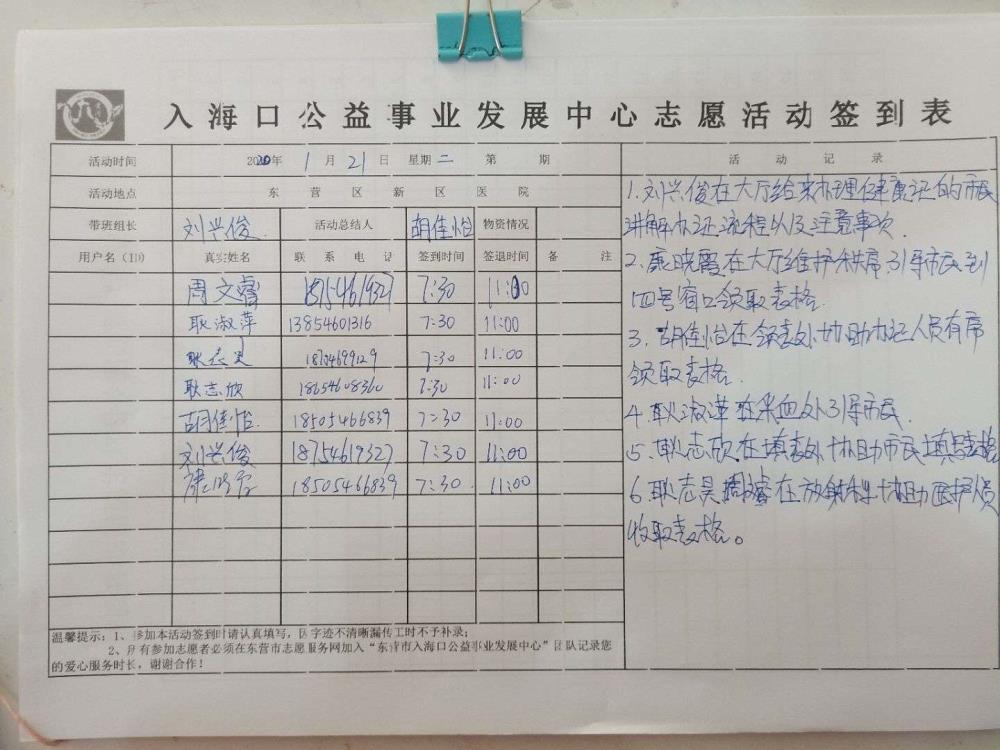 入海口公益事业发展中心志愿活动签到表
活动时间 2020年 1月21日 星期二 第 期
活动地点 东营区新区医院
带班组长 刘兴俊 活动总结人 胡佳怡 物资情况
用户名（ID） 真实姓名 联系电话 签到时间 签退时间 备注
周文睿 18754619327 7:30 11:00
耿淑萍 13854601316 7:30 11:00
耿志昊 7:30 11:00
耿志欣 18654608360 7:30 11:00
胡佳怡 18505466839 7:30 11:00
刘兴俊 18754619327 7:30 11:00
18505466839 7:30 11:00
温馨提示：1、参加本活动签到时请认真填写，因字迹不清晰漏传工时不予补录；
2、所有参加志愿者必须在东营市志愿服务网加入“东营市入海口公益事业发展中心”团队记录您
的爱心服务时长，谢谢合作！
活动记录
1.刘兴俊在大厅给来办理健康证的市民
讲解办证流程以及注意事项.
2.康晓霞在大厅维护秩序,引导市民到
四号窗口领取表格.
3.胡佳怡在领表处协助办证人员有序
领取表格.
4.耿淑萍在采血处引导市民.
5.耿志欣在填表处协助市民填写表格
6.耿志昊周文睿在放射科协助医护人员
收取表格。